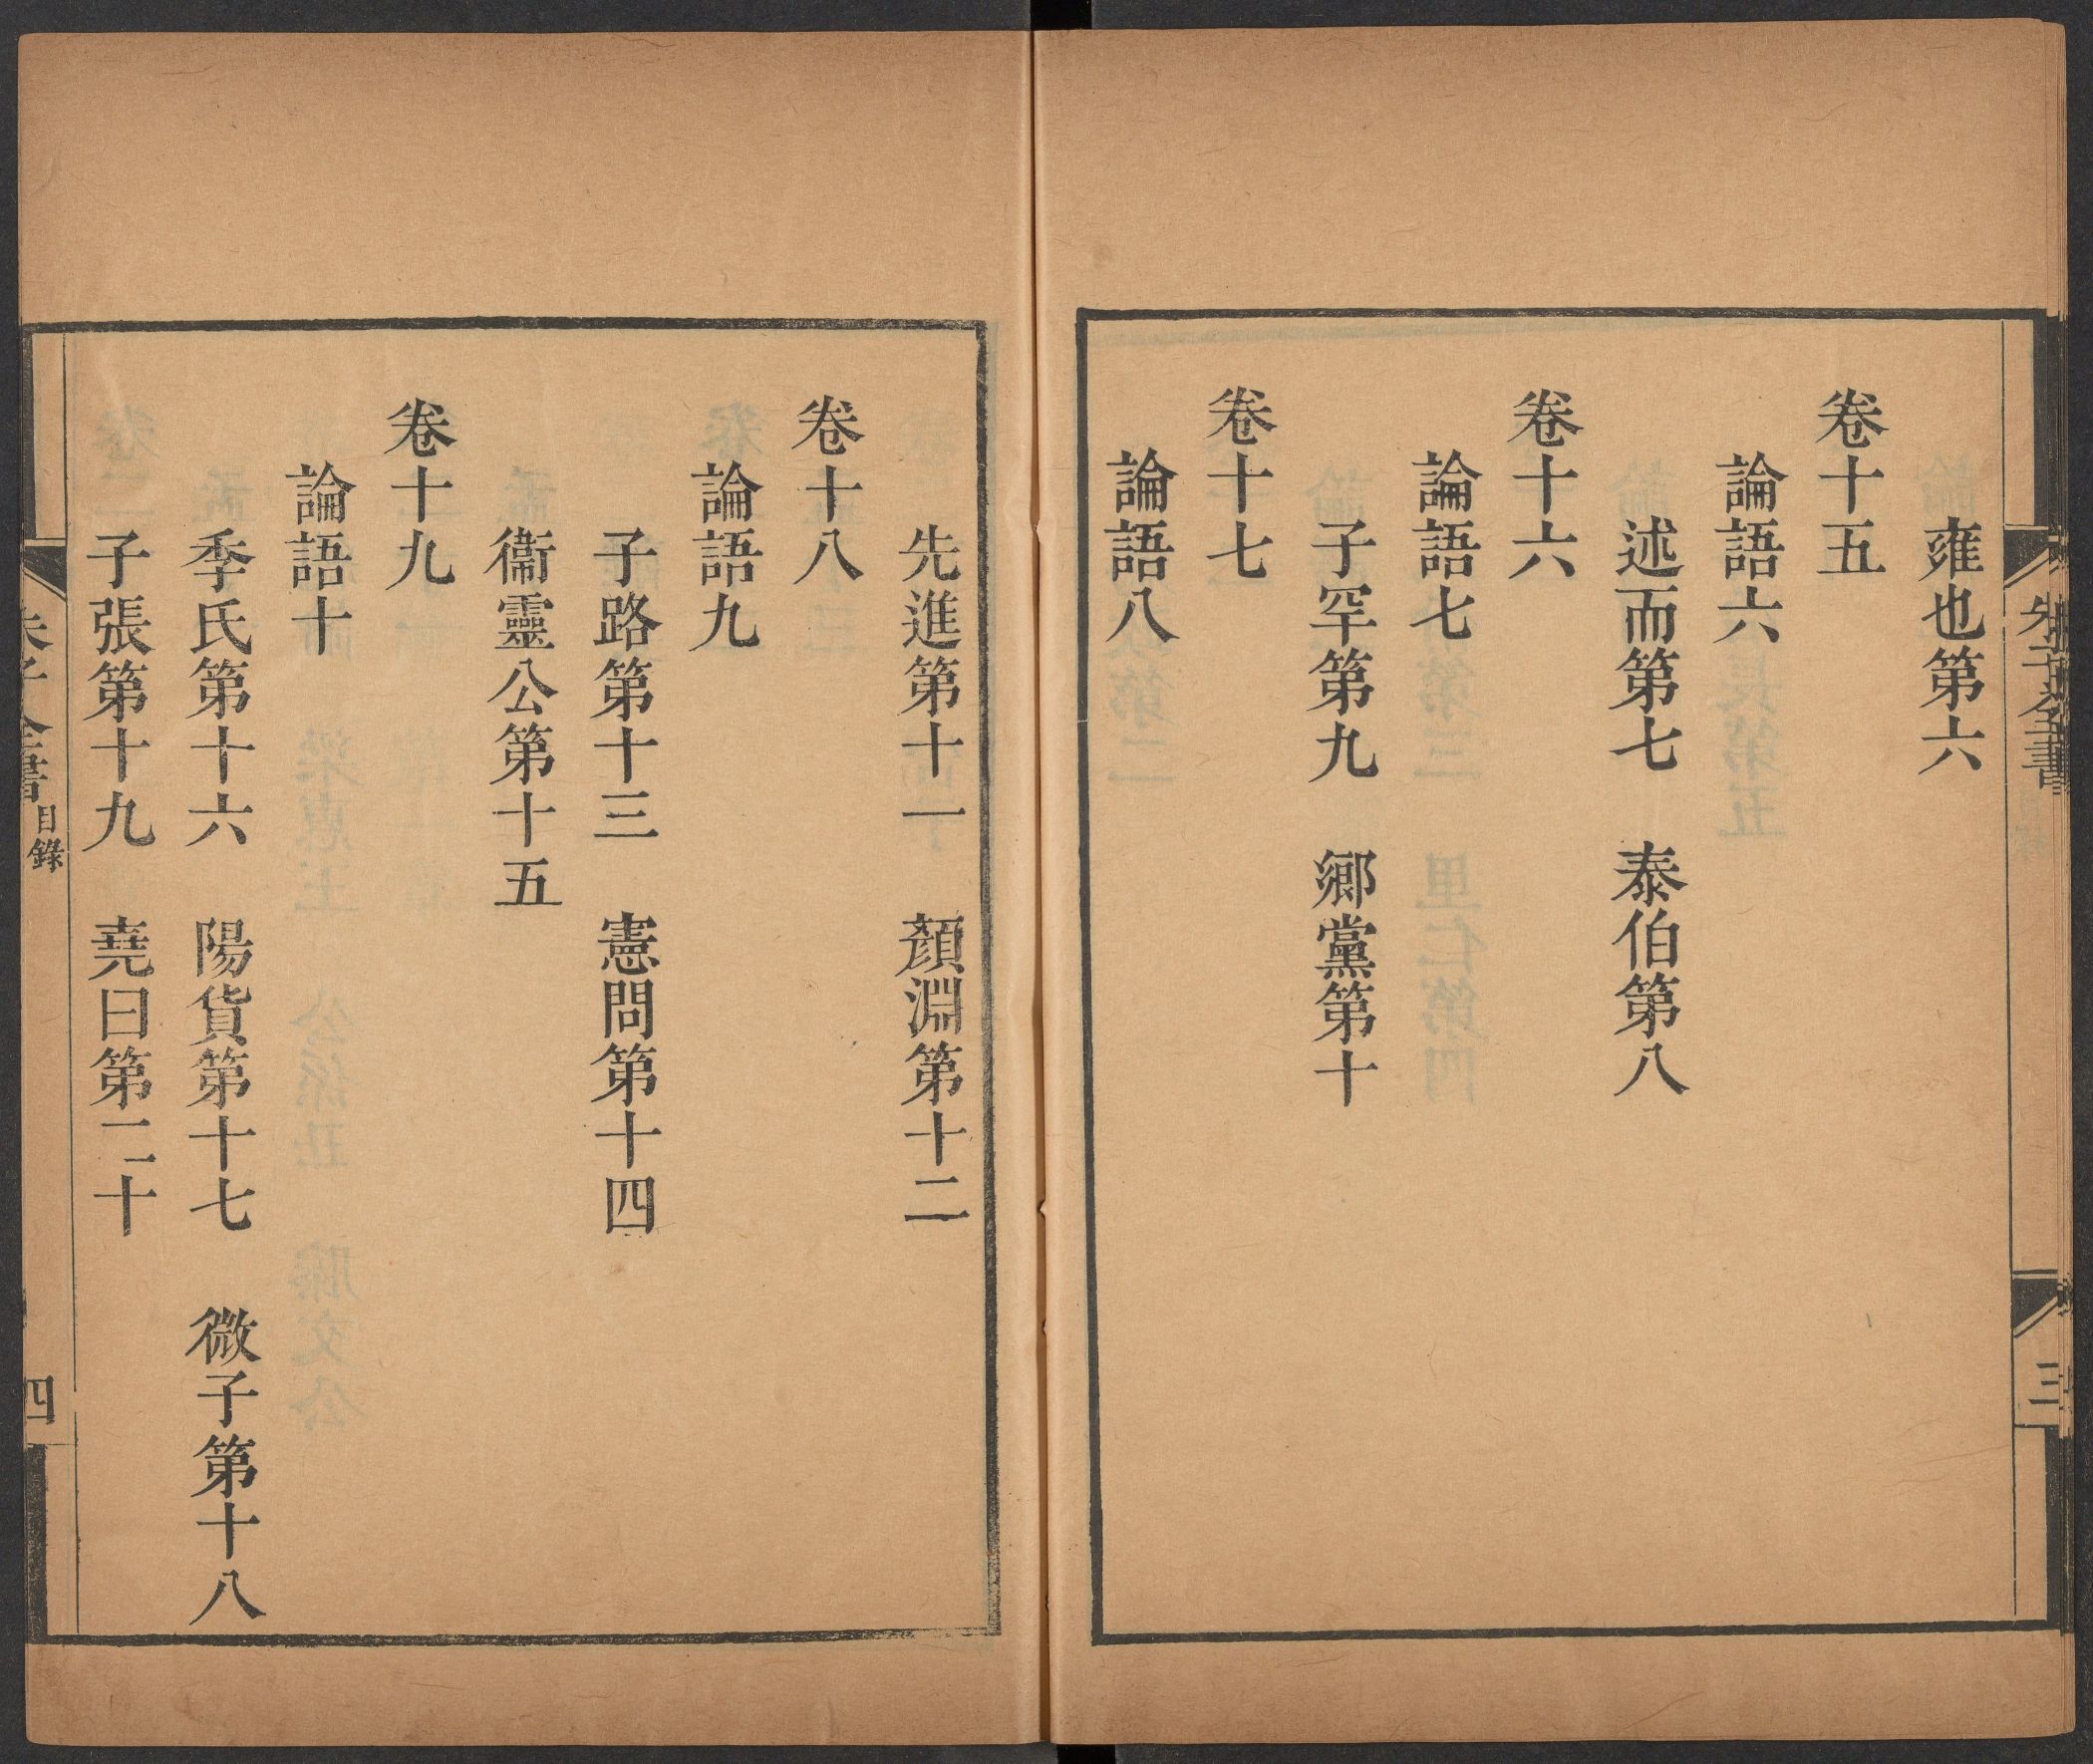 朱子全書
三
雍也第六
卷十五
論語六
述而第七　泰伯第八
卷十六
論語七
子罕第九　鄉黨第十
卷十七
論語八
先進第十一　顏淵第十二
卷十八
論語九
子路第十三　憲問第十四
衞靈公第十五
卷十九
論語十
季氏第十六　陽貨第十七　微子第十八
子張第十九　堯曰第二十
朱子全書 目錄
四